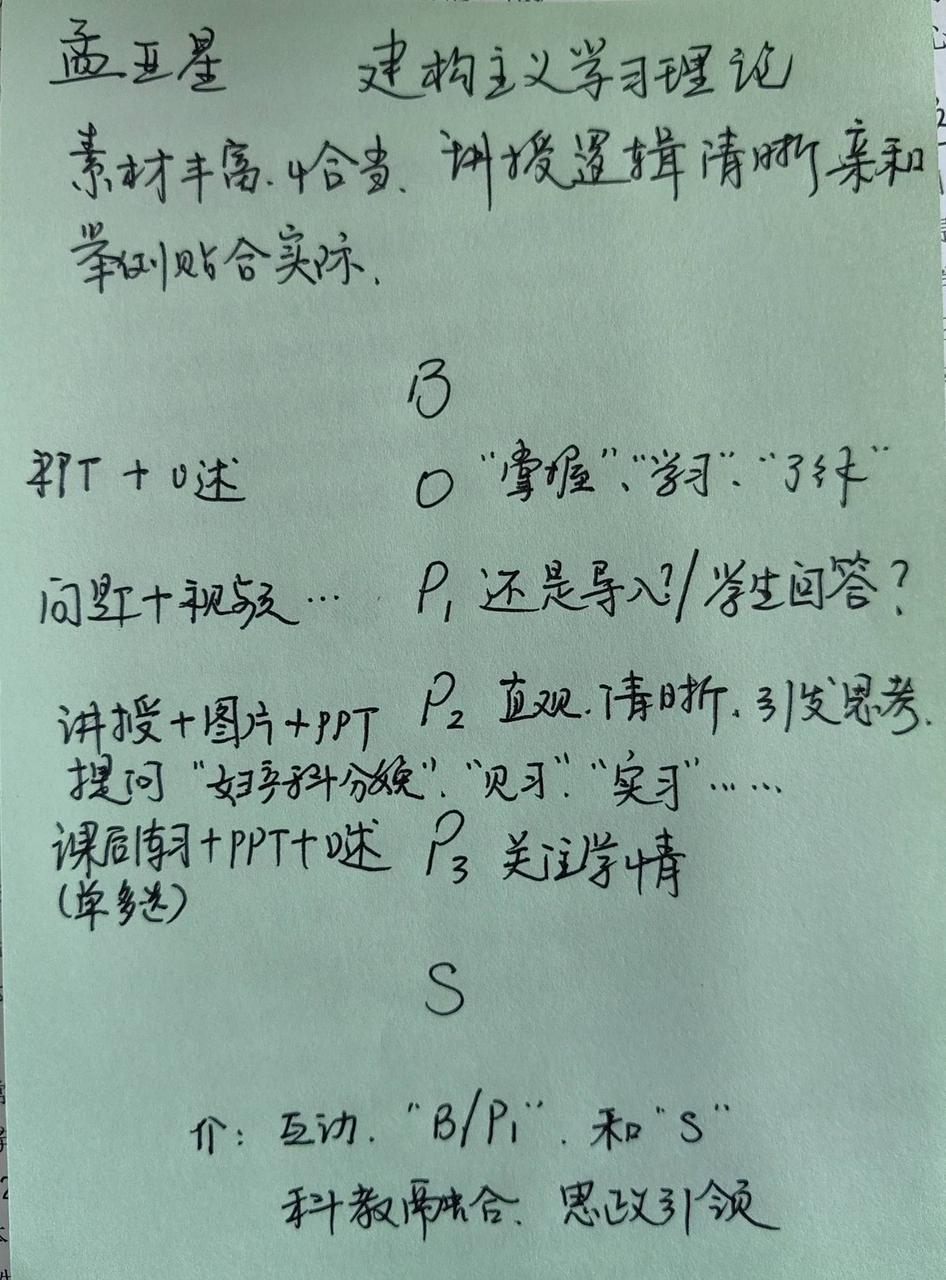 孟亚星 建构主义学习理论
素材丰富、恰当、讲授逻辑清晰亲和
举例贴合实际、
B
PPT + 口述 O “掌握”、“学习”、“了解”
问题+视频… P1 还是导入?/学生回答?
讲授+图片+PPT P2 直观、清晰、引发思考、
提问“妇产科分娩”、“见习”、“实习”……
课后练习+PPT+口述 P3 关注学情
(单多选)
S
介: 互动、“B/P1”、和“S”
科教融合、思政引领